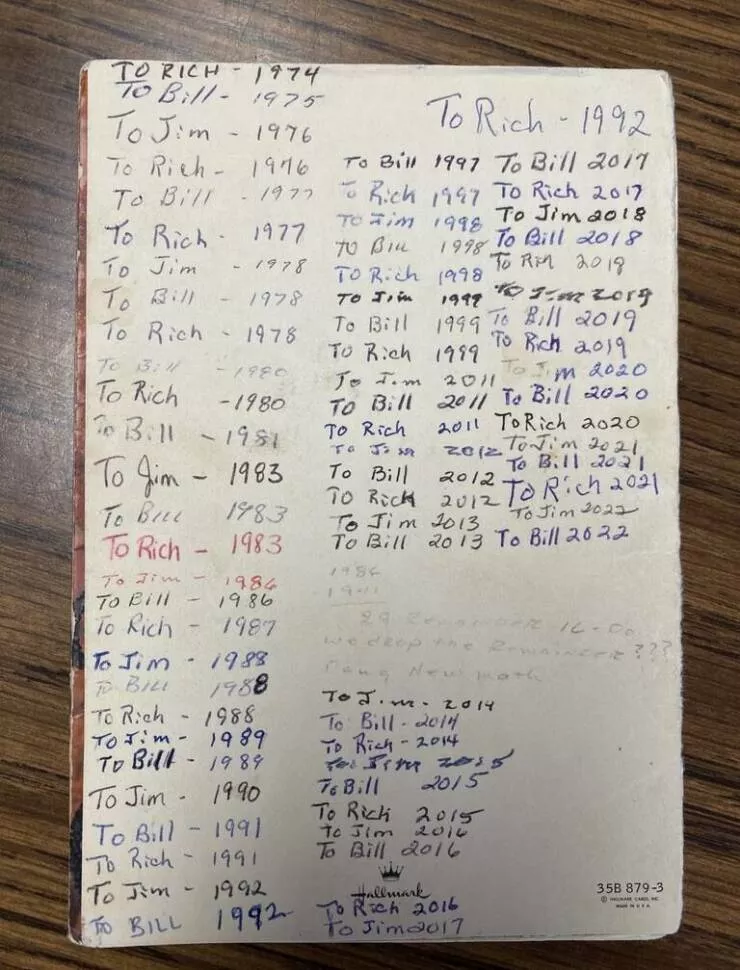 TO RICH - 1974
To Bill - 1975
To Jim - 1976
To Rich - 1976
To Bill - 1977
To Rich - 1977
To Jim - 1978
To Bill - 1978
To Rich - 1978
To Bill - 1980
To Rich - 1980
To Bill - 1981
To Jim - 1983
To Bill 1983
To Rich - 1983
To Jim - 1986
To Bill - 1986
To Rich - 1987
To Jim - 1988
To Bill 1988
To Rich - 1988
To Jim - 1989
To Bill - 1989
To Jim - 1990
To Bill - 1991
To Rich - 1991
To Jim - 1992
To BILL 1992
To Rich - 1992
To Bill 1997
To Rich 1997
To Jim 1998
To Bill 1998
To Rich 1998
To Jim 1999
To Bill 1999
To Rich 1999
To Jim 2011
To Bill 2011
To Rich 2011
To Jim 2012
To Bill 2012
To Rick 2012
To Jim 2013
To Bill 2013
1986
29 Remainder 16-00
we drop the Remainder ???
Dang New math
To Jim - 2014
To Bill - 2014
To Rich - 2014
To Jim 2015
To Bill 2015
To Rich 2015
To Jim 2016
To Bill 2016
Hallmark
To Rich 2016
To Jim 2017
To Bill 2017
To Rich 2017
To Jim 2018
To Bill 2018
To Rich 2018
To Jim 2019
To Bill 2019
To Rich 2019
To Jim 2020
To Bill 2020
To Rich 2020
To Jim 2021
To Bill 2021
To Rich 2021
To Jim 2022
To Bill 2022
35B 879-3
© HALLMARK CARDS, INC.
MADE IN U.S.A.